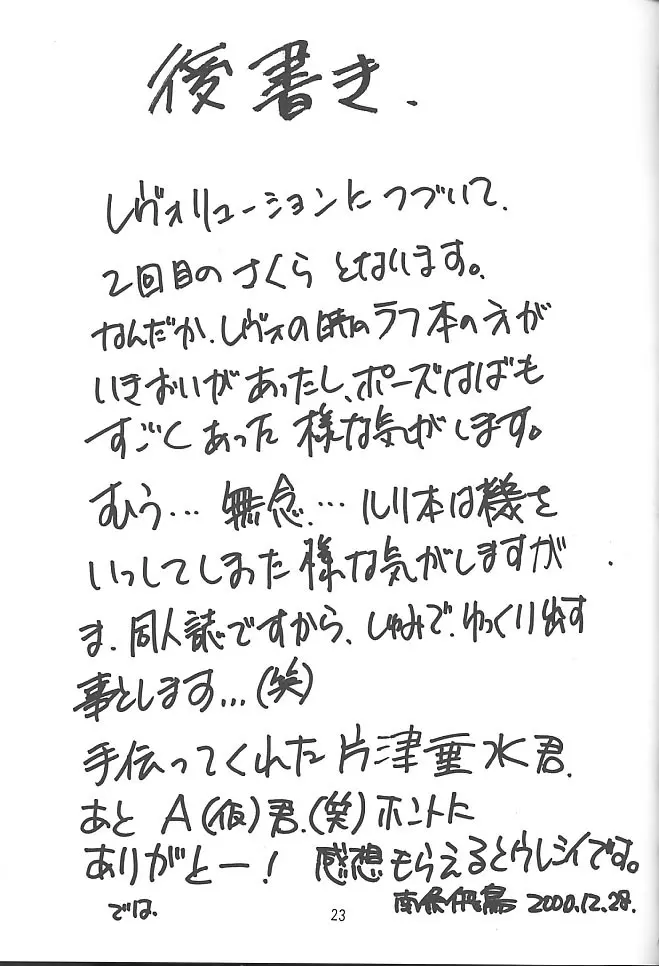 後書き.
レヴォリューションにつづいて、
2回目のさくらとなります。
なんだか、レヴォの時のラフ本の方が
いきおいがあったし、ポーズはばも
すごくあった様な気がします。
むう… 無念… ルリ本は機を
いっしてしまった様な気がしますが
ま、同人誌ですから、しゅみで、ゆっくり出す
事とします…(笑)
手伝ってくれた片津垂水君、
あと A(仮)君、(笑)ホントに
ありがとー! 感想もらえるとウレシイです。
では、
2000.12.28.
23